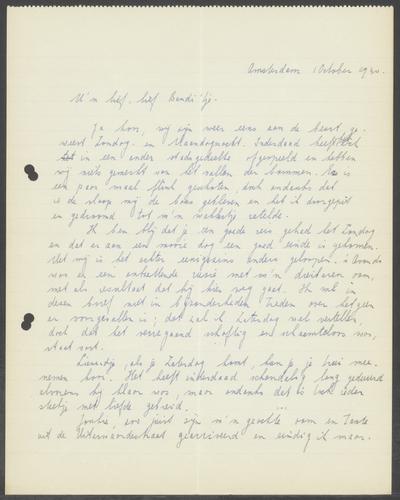 Amsterdam 1 October 1940.
M'n lief, lief Bendi'tje.
Ja hoor, wij zijn weer eens aan de beurt ge-
weest Zondag- en Maandagnacht. Inderdaad heeft
in een ander stadsgedeelte afgespeeld en hebben
wij niets gemerkt van het vallen der bommen. Er is
een paar maal flink geschoten, doch ondanks dat
is de slaap mij de baas gebleven en heb ik doorgepit
en gedroomd tot m'n wekkertje ratelde.
Ik ben blij dat je een goede reis gehad hebt Zondag
en dat er aan een mooie dag een goed einde is gekomen.
Met mij is het echter eenigszins anders geloopen. 's Avonds
was er een ontzettende ruzie met m'n
met als resultaat dat hij hier weg gaat. Ik zal in
dezen brief niet in bijzonderheden treden over hetgeen
er voorgevallen is; dat zal ik Zaterdag wel vertellen,
doch dat het verregaand schoftig en schaamteloos was,
staat vast.
Lieverdje, als je Zaterdag komt, kan je trui mee-
nemen hoor. Het heeft inderdaad schandalig lang geduurd
alvorens hij klaar was, maar ondanks dat is ieder
steekje met liefde gebreid.
zoo juist zijn m'n geachte oom en Tante
uit de gearriveerd en eindig ik maar.